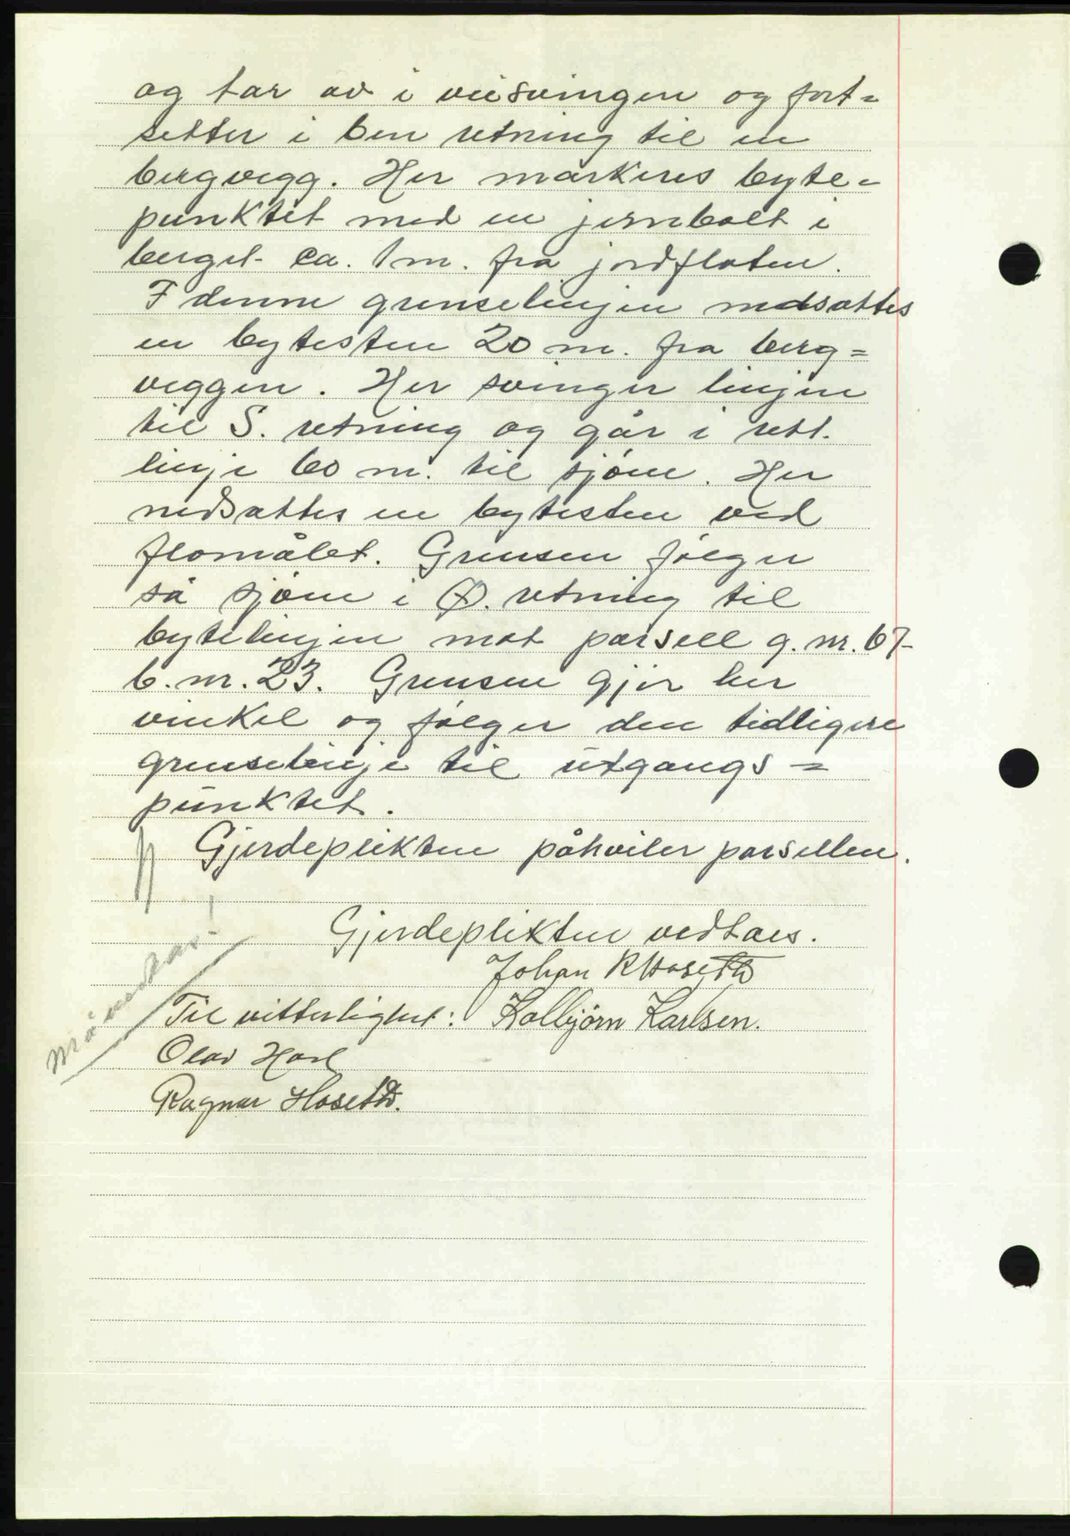 og tar av i veisvingen og fort=
setter i ben retning til en
bergvegg. Her markeres byte=
punktet med en jernbolt i
berget ca. 1 m. fra jordflaten.
I denne grenselinjen nedsattes
en bytesten 20 m. fra berg=
veggen. Her svinger linjen
til S. retning og går i rett.
linje 60 m. til sjøen. Her
nedsattes en bytesten ved
flomålet. Grensen følger
så sjøen i Ø. retning til
bytelinjen mot parsell g. nr. 67-
b. nr. 23. Grensen gjør her
vinkel og følger den tidligere
grenselinje til utgangs=
punktet.
Gjerdeplikten påhviler parsellen.
Gjerdeplikten vedtaes.
Johan R Hoseth
Til vitterlighet: Kolbjørn Karlsen.
må vedtas!
Olav
Ragnar Hoseth.